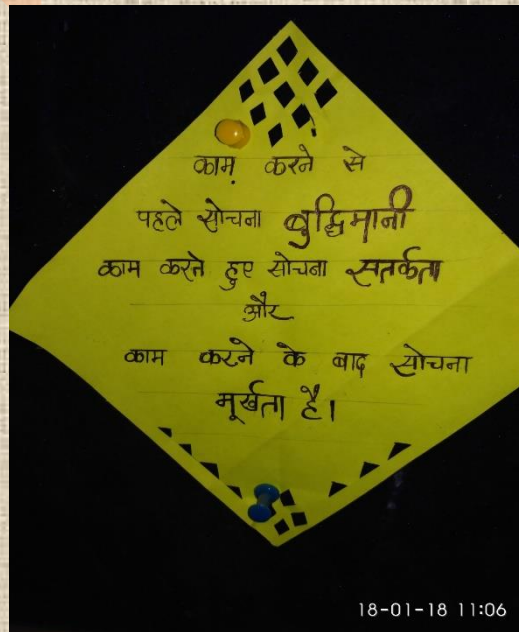 काम करने से
पहले सोचना बुद्धिमानी
काम करते हुए सोचना सतर्कता
और
काम करने के बाद सोचना
मूर्खता है।
18-01-18 11:06